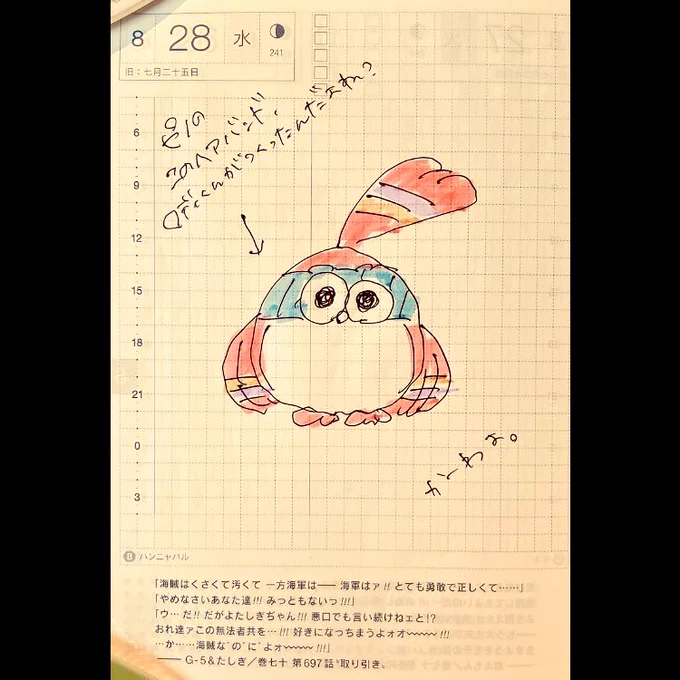 8 28 水
241
旧：七月二十五日
このヘアバンド、
つくったんだよね？
6
9
12
15
18
21
0
3
かわよ。
B ハンニャバル
「海賊はくさくて汚くて 一方海軍は── 海軍はァ!! とても勇敢で正しくて……」
「やめなさいあなた達!!! みっともないっ!!!」
「ウ…だ!! だがよたしぎぢゃん!!! 悪口でも言い続けねェと!?
おれ達ァこの無法者共を…!!! 好きになっちまうよォオ〰〰 !!!
…か……海賊な゛の゛に゛よォ〰〰 !!!」
── G-5＆たしぎ／巻七十 第697話"取り引き„